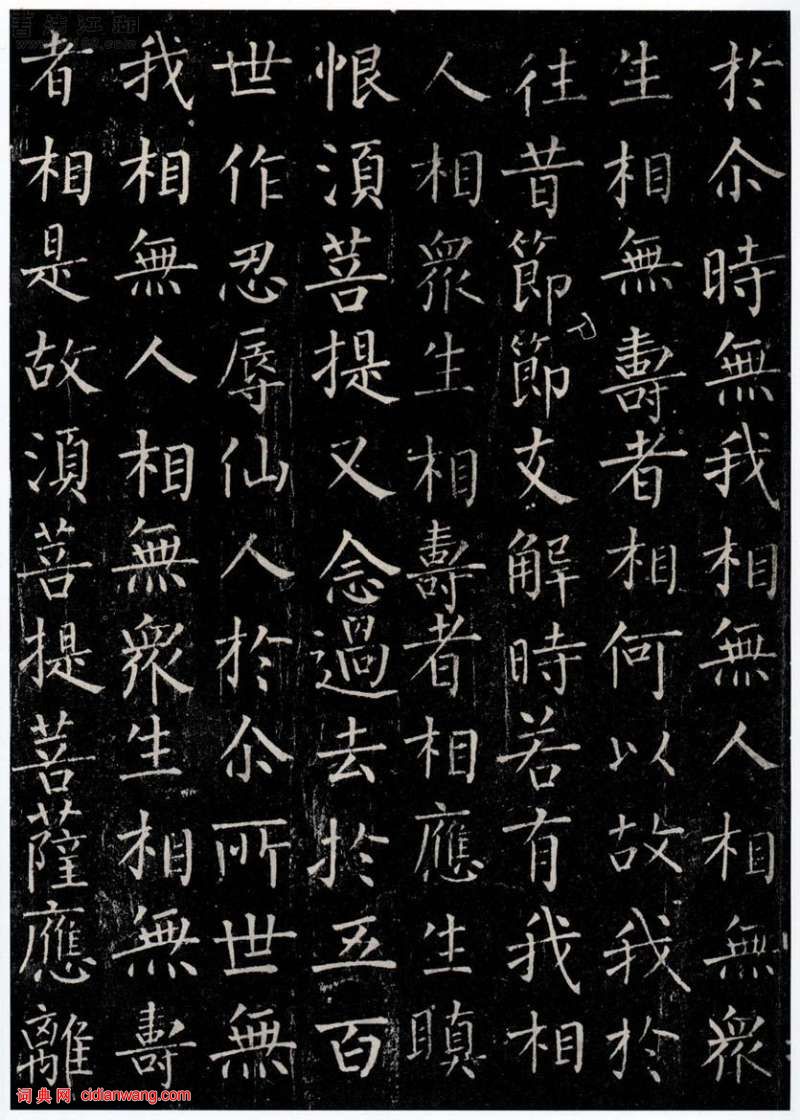 於尒時無我相無人相無衆
生相無壽者相何以故我於
往昔節節支解時若有我相
人相衆生相壽者相應生瞋
恨須菩提又念過去於五百
世作忍辱仙人於尒所世無
我相無人相無衆生相無壽
者相是故須菩提菩薩應離
書法江湖
词典网 cidianwang.com